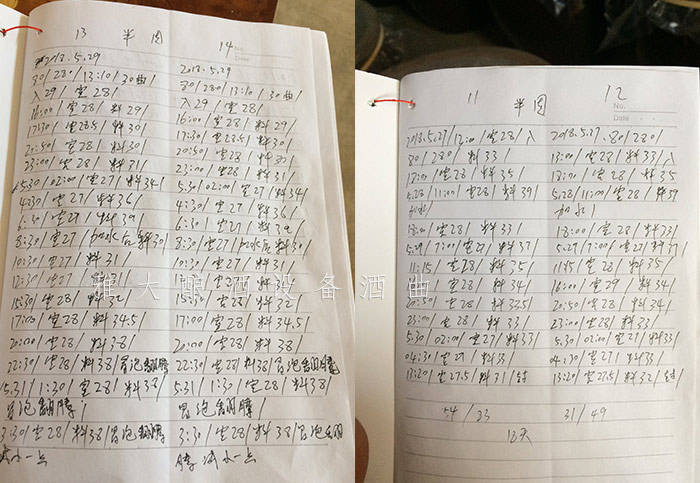 13 半固 14
No.
Date
2018.5.29
30/28/13:10/30曲/
入29/室28/
16:00/室28/料29/
17:30/室28.5/料30/
20:50/室28/料30/
23:00/室28/料31/
5.30/02:00/室27/料34/
4:30/室27/料36/
6:30/室27/料39/
8:30/室27/加水后料30/
10:30/室27/料31/
12:30/室27/料31/
15:30/室28/料32/
17:00/室28/料34.5/
20:00/室28/料38/
22:30/室28/料38/冒泡翻腾
5.31/1:30/室28/料38/
冒泡翻腾/
3:30/室28/料38/冒泡翻腾
减小一点
2018.5.29
30/280/13:10/30曲/
入29/室28/
16:00/室28/料29/
17:30/室28.5/料30/
20:50/室28/料30/
23:00/室28/料31/
5.30/02:00/室27/料34/
4:30/室27/料36/
6:30/室27/料39/
8:30/室27/加水后料30/
10:30/室27/料31/
15:30/室28/料32/
17:00/室28/料34.5/
20:00/室28/料38/
22:30/室28/料38/冒泡翻腾
5.31/1:30/室28/料38/
冒泡翻腾/
3:30/室28/料38/冒泡翻
腾减小一点
11 半固 12
No.
Date
2018.5.27/12:00/室28/入
30/280/料33/
18:00/室28/料35/
5.28/11:00/室28/料39/
加水/
18:00/室28/料33/
5.29/7:00/室27/料37/
11:15/室28/料35/
料34/
20:50/室28/料33.5/
23:00/室28/料33/
5.30/02:00/室27/料33/
04:30/室27/料33/
13:20/室27.5/料31/封
54/33
2018.5.27.30/280/
13:00/室28/料33/入
18:00/室28/料35/
5.28/11:00/室28/料39
加水/
18:00/室28/料33/
5.29/7:00/室27/料37/
11:15/室28/料35/
16:00/室29/料34/
20:50/室28/料34/
23:00/室28/料33/
5.30/02:00/室27/料33/
04:30/室27/料33/
13:20/室27.5/料32/封/
31/49
12天
雅大酿酒设备酒曲